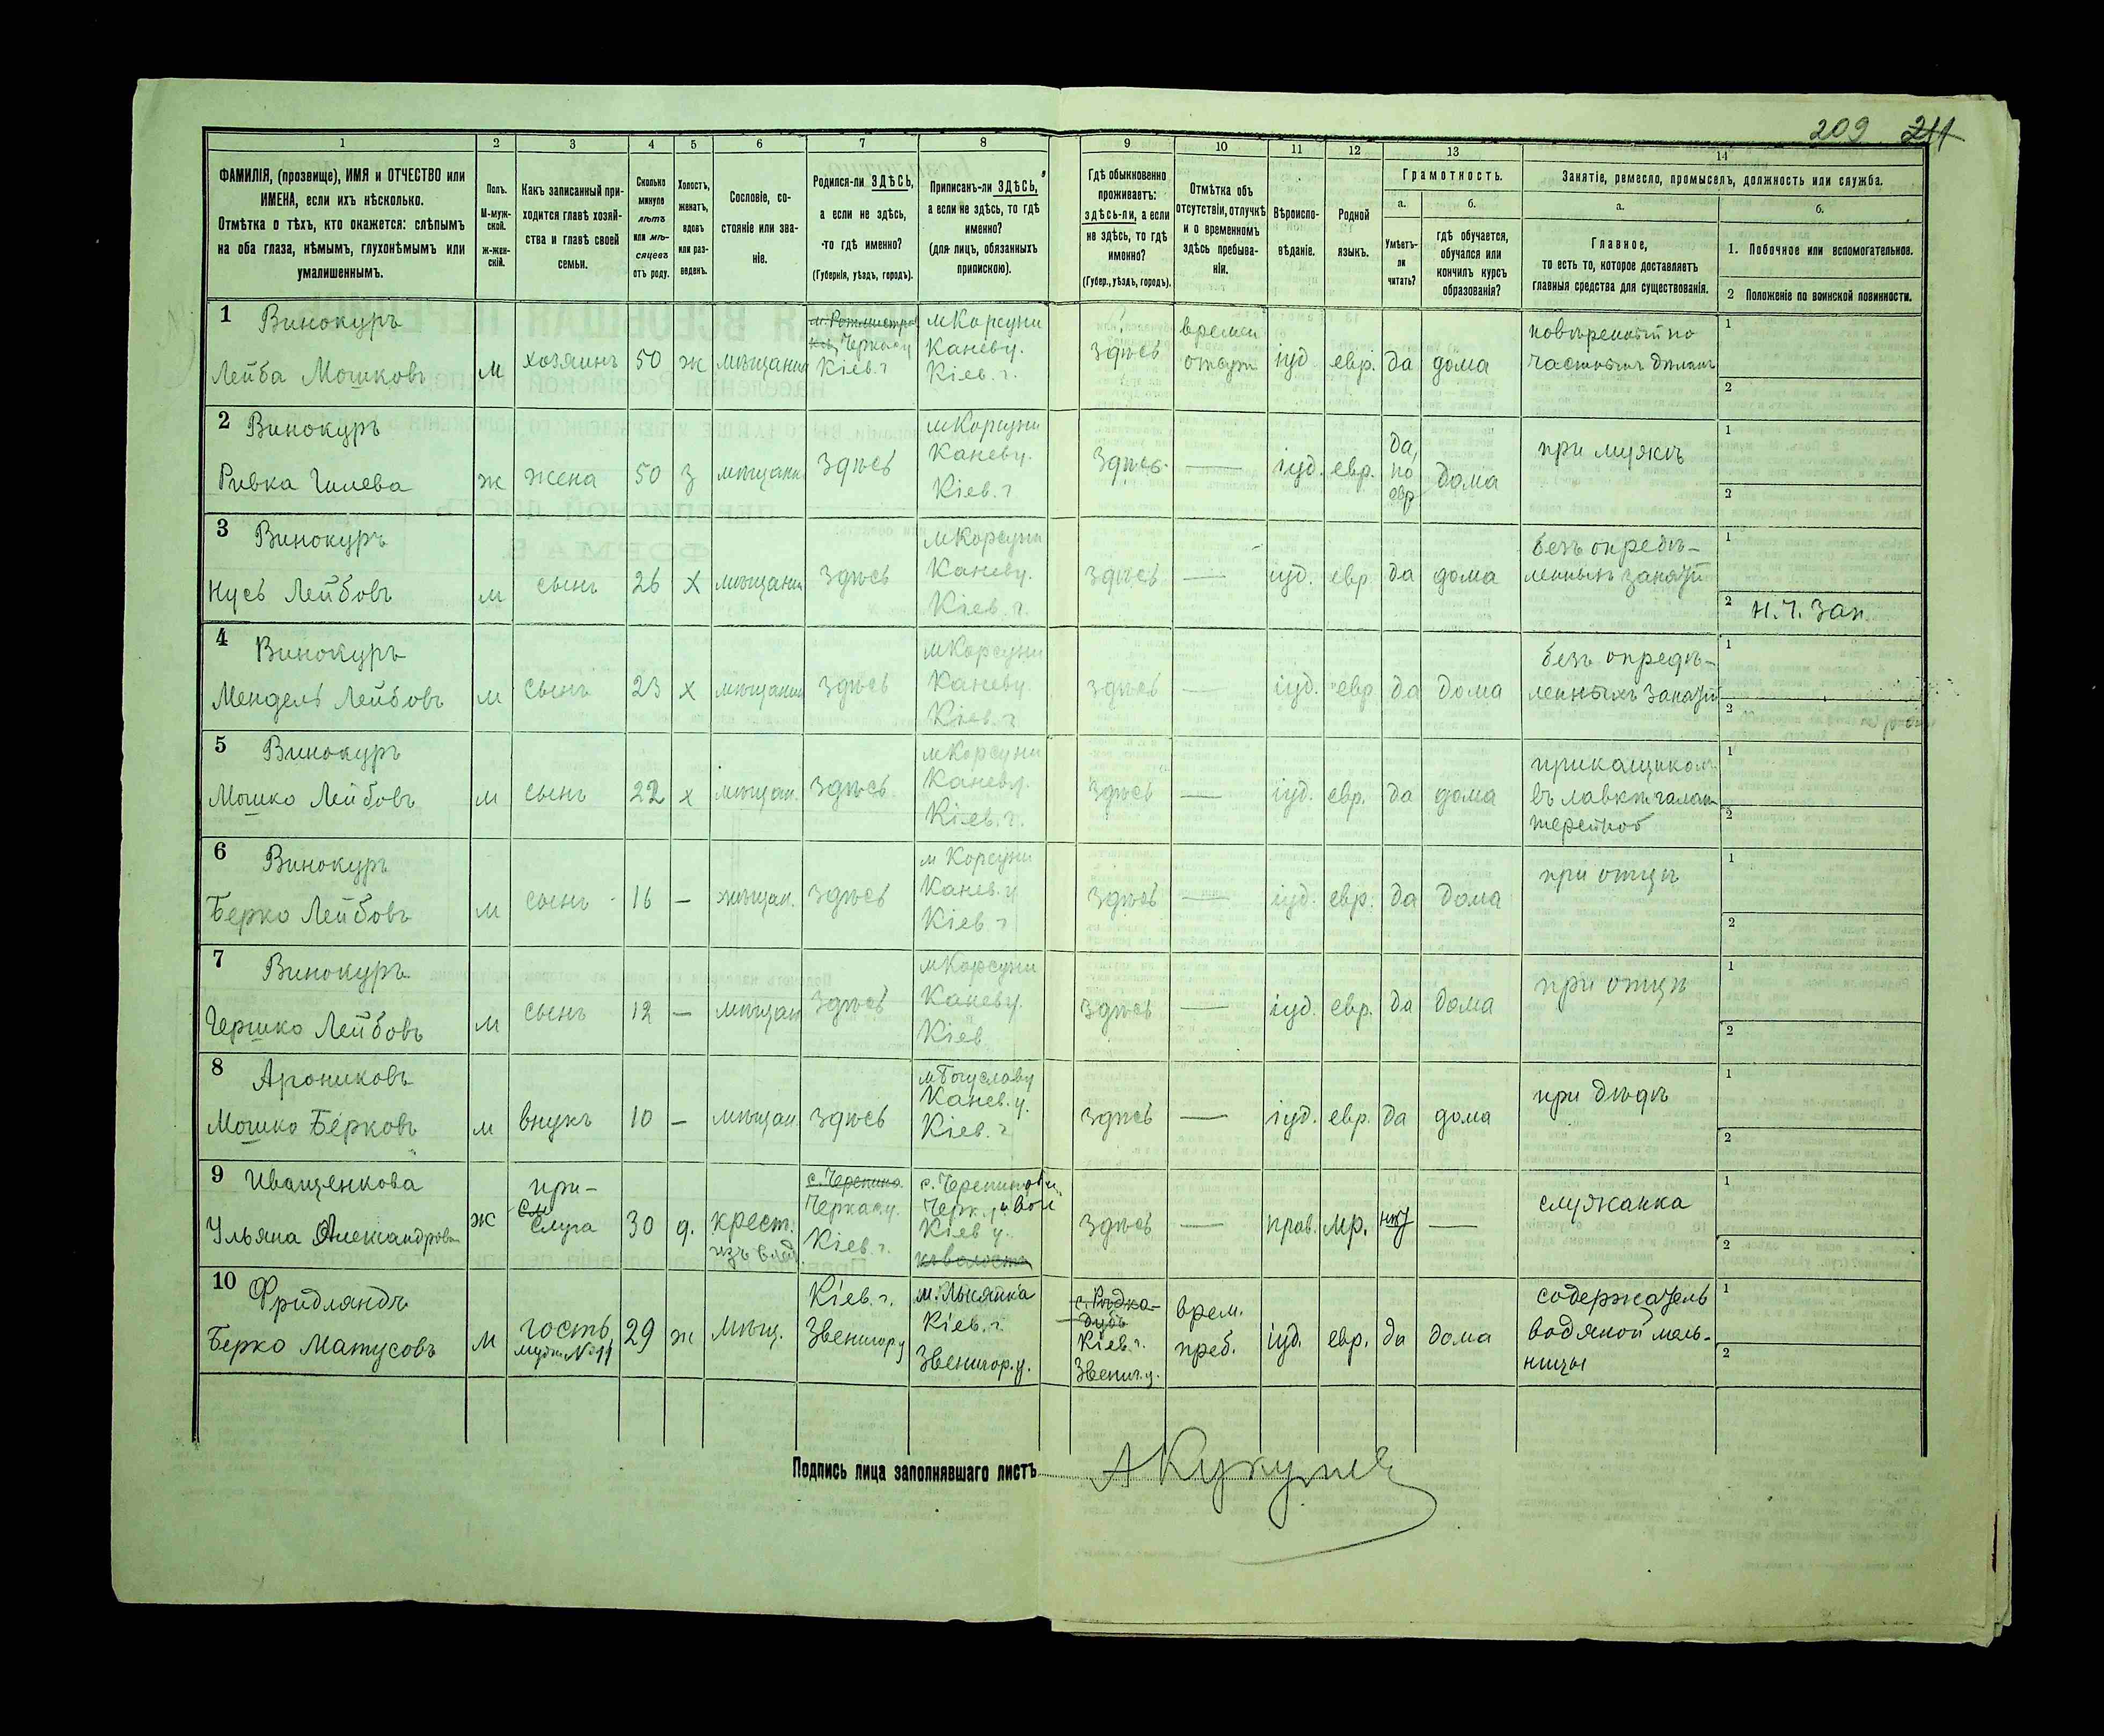 209 211
1 2 3 4 5 6 7 8 9 10 11 12 13 14
ФАМИЛІЯ, (прозвище), ИМЯ и ОТЧЕСТВО или
ИМЕНА, если ихъ нѣсколько.
Отмѣтка о тѣхъ, кто окажется: слѣпымъ
на оба глаза, нѣмымъ, глухонѣмымъ или
умалишеннымъ.
Полъ.
М-муж-
ской.
ж-жен-
скій.
Какъ записанный при-
ходится главѣ хозяй-
ства и главѣ своей
семьи.
Сколько
минуло
лѣтъ
или мѣ-
сяцевъ
отъ роду.
Холостъ,
женатъ,
вдовъ
или раз-
веденъ.
Сословіе, со-
стояніе или зва-
ніе.
Родился-ли ЗДѢСЬ,
а если не здѣсь,
то гдѣ именно?
(Губернія, уѣздъ, городъ).
Приписанъ-ли ЗДѢСЬ,
а если не здѣсь, то гдѣ
именно?
(для лицъ, обязанныхъ
припискою).
Гдѣ обыкновенно
проживаетъ:
здѣсь-ли, а если
не здѣсь, то гдѣ
именно?
(Губер., уѣздъ, городъ).
Отмѣтка объ
отсутствіи, отлучкѣ
и о временномъ
здѣсь пребыва-
ніи.
Вѣроиспо-
вѣданіе.
Родной
языкъ.
Грамотность.
а.
Умѣетъ-
ли
читать?
б.
гдѣ обучается,
обучался или
кончилъ курсъ
образованія?
Занятіе, ремесло, промыселъ, должность или служба.
а.
Главное,
то есть то, которое доставляетъ
главныя средства для существованія.
б.
1. Побочное или вспомогательное.
2 Положеніе по воинской повинности.
1 Винокуръ
Лейба Мошковъ
м
хозяинъ
50
ж
мѣщанин
Черкасу
Кіев. г
м Корсуни
Каневу.
Кіев. г.
здѣсь
времен
отсут
іуд
евр.
да
дома
повѣренный по
частнымъ дѣламъ
1
2
2 Винокуръ
Ривка Гилева
ж
жена
50
з
мѣщанк.
здѣсь
м Корсуни
Каневу.
Кіев. г
здѣсь.
—
іуд.
евр.
да,
по
евр
дома
при мужѣ
1
2
3 Винокуръ
Нусь Лейбовъ
м
сынъ
26
х
мѣщанин
здѣсь
м Корсуни
Каневу.
Кіев. г.
здѣсь
—
іуд.
евр
да
дома
безъ опредѣ-
ленныхъ занятій
1
2 Н. Ч. Зап
4 Винокуръ
Мендель Лейбовъ
м
сынъ
23
х
мѣщанин
здѣсь
м Корсуни
Каневу.
Кіев. г
здѣсь
—
іуд.
евр
да
дома
безъ опредѣ-
ленныхъ занятій
1
2
5 Винокуръ
Мошко Лейбовъ
м
сынъ
22
х
мѣщан.
здѣсь
м Корсуни
Каневу.
Кіев. г.
здѣсь
—
іуд.
евр.
да
дома
прикащикомъ
въ лавкѣ галан-
терейной
1
2
6 Винокуръ
Берко Лейбовъ
м
сынъ
16
—
мѣщан.
здѣсь
м Корсуни
Канев. у
Кіев г
здѣсь
—
іуд.
евр.
да
дома
при отцѣ
1
2
7 Винокуръ
Гершко Лейбовъ
м
сынъ
12
—
мѣщан
здѣсь
м Корсуни
Каневу.
Кіев
здѣсь
—
іуд.
евр.
да
дома
при отцѣ
1
2
8 Арониковъ
Мошко Берковъ
м
внукъ
10
—
мѣщан.
здѣсь
м Богуславу
Канев. у.
Кіев. г
здѣсь
—
іуд.
евр.
да
дома
при дѣдѣ
1
2
9 Иващенкова
Ульяна Александрова
ж
при-
слуга
30
д.
крест.
изъ влад.
с. Черепина
Черкасу.
Кіев. г.
Черк. у. вол
Кіев у.
здѣсь
—
прав.
мр.
нѣт
—
служанка
1
2
10 Фридляндъ
Берко Матусовъ
м
гость
№ 11
29
ж
мѣщ.
Кіев. г.
Звенигору
м. Лысянка
Кіев. г.
Звенигор. у.
Кіев. г.
Звениг. у.
врем.
преб.
іуд.
евр.
да
дома
содержатель
водяной мель-
ницы
1
2
Подпись лица заполнявшаго листъ